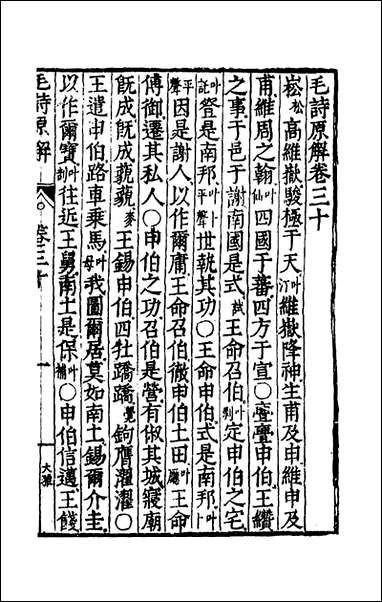 毛詩原解卷三十
崧松高維嶽駿極于天叶汀維嶽降神生甫及申維申及
甫維周之翰叶仙四國于蕃四方于宣○亹亹申伯王纘
之事于邑于謝南國是式試王命召伯叶剝定申伯之宅
叶託登是南邦叶平聲世執其功○王命申伯式是南邦叶卜
平聲因是謝人以作爾庸王命召伯徹申伯土田叶廳王命
傅御遷其私人○申伯之功召伯是營有俶其城寢廟
旣成旣成藐藐麥王錫申伯四牡蹻蹻覺鉤膺濯濯○
王遣申伯路車乘馬叶母我圖爾居莫如南土錫爾介圭
以作爾寶叶剖往近王舅南土是保叶補○申伯信邁王餞
毛詩原解 卷三十 一 大雅